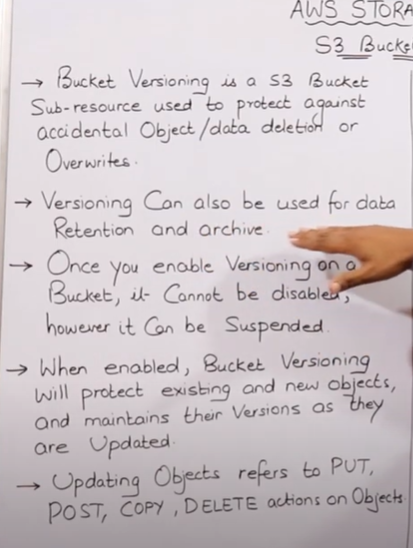 AWS STORA
S3 Bucke
→ Bucket Versioning is a S3 Bucket
Sub-resource used to protect against
accidental Object/data deletion or
Overwrites.
→ Versioning Can also be used for data
Retention and archive.
→ Once you enable Versioning on a
Bucket, it Cannot be disabled,
however it Can be Suspended.
→ When enabled, Bucket Versioning
will protect existing and new objects,
and maintains their Versions as they
are Updated.
→ Updating Objects refers to PUT,
POST, COPY, DELETE actions on Objects